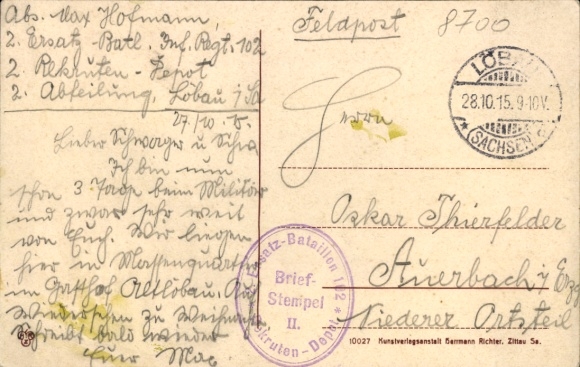 Abs. Max Hofmann,
2. Ersatz-Batl. Inf. Regt. 102
2. Rekruten-Depot
2. Abteilung, Löbau i/Sa
27/10. 15.
Lieber Schwager u Schw
Ich bin nun
schon 3 Tage beim Militär
und zwar sehr weit
von Euch. Wir liegen
hier in Massenquart
im Gasthof Altlöbau. Auf
Wiedersehen zu Weihnacht
Schreibt bald wieder
Euer Max
Feldpost
8700
LÖBAU
28.10.15. 9-10V.
* (SACHSEN)
Herrn
Oskar Thierfelder
Auerbach i/Erzg
Niederer Ortsteil
Ersatz-Bataillon 102 *
Brief-
Stempel
II.
Rekruten-Depot
10027 Kunstverlagsanstalt Herrmann Richter, Zittau Sa.